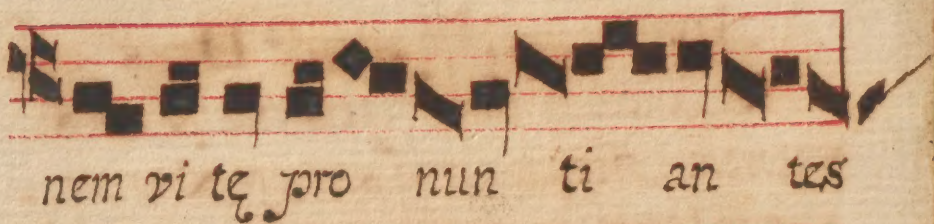 nem vi tę pro nun ti an tes